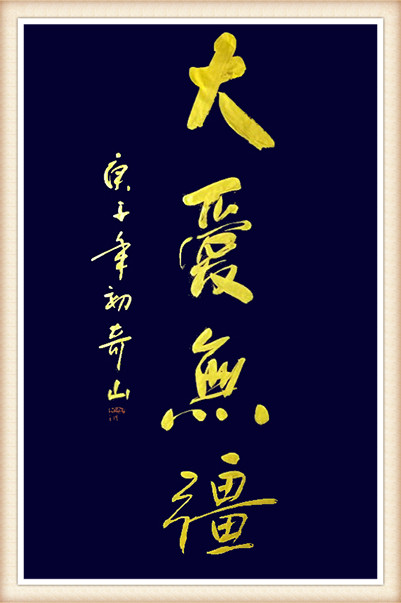 大愛無疆
庚子年初奇山